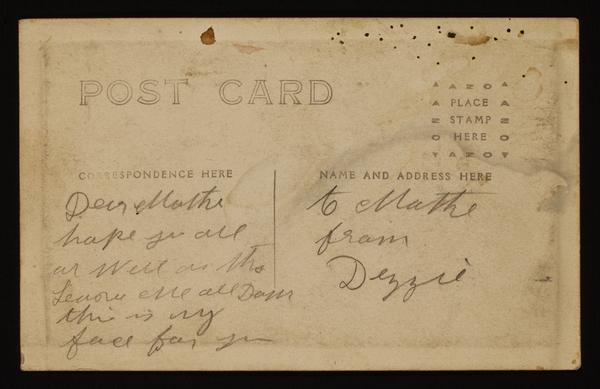 POST CARD
AZO
PLACE
STAMP
HERE
AZO
CORRESPONDENCE HERE
NAME AND ADDRESS HERE
Dear Mathe
hope you all
ar Well as this
Leavs Me all Down
this is my
face for you
to Mathe
from
Dezzie